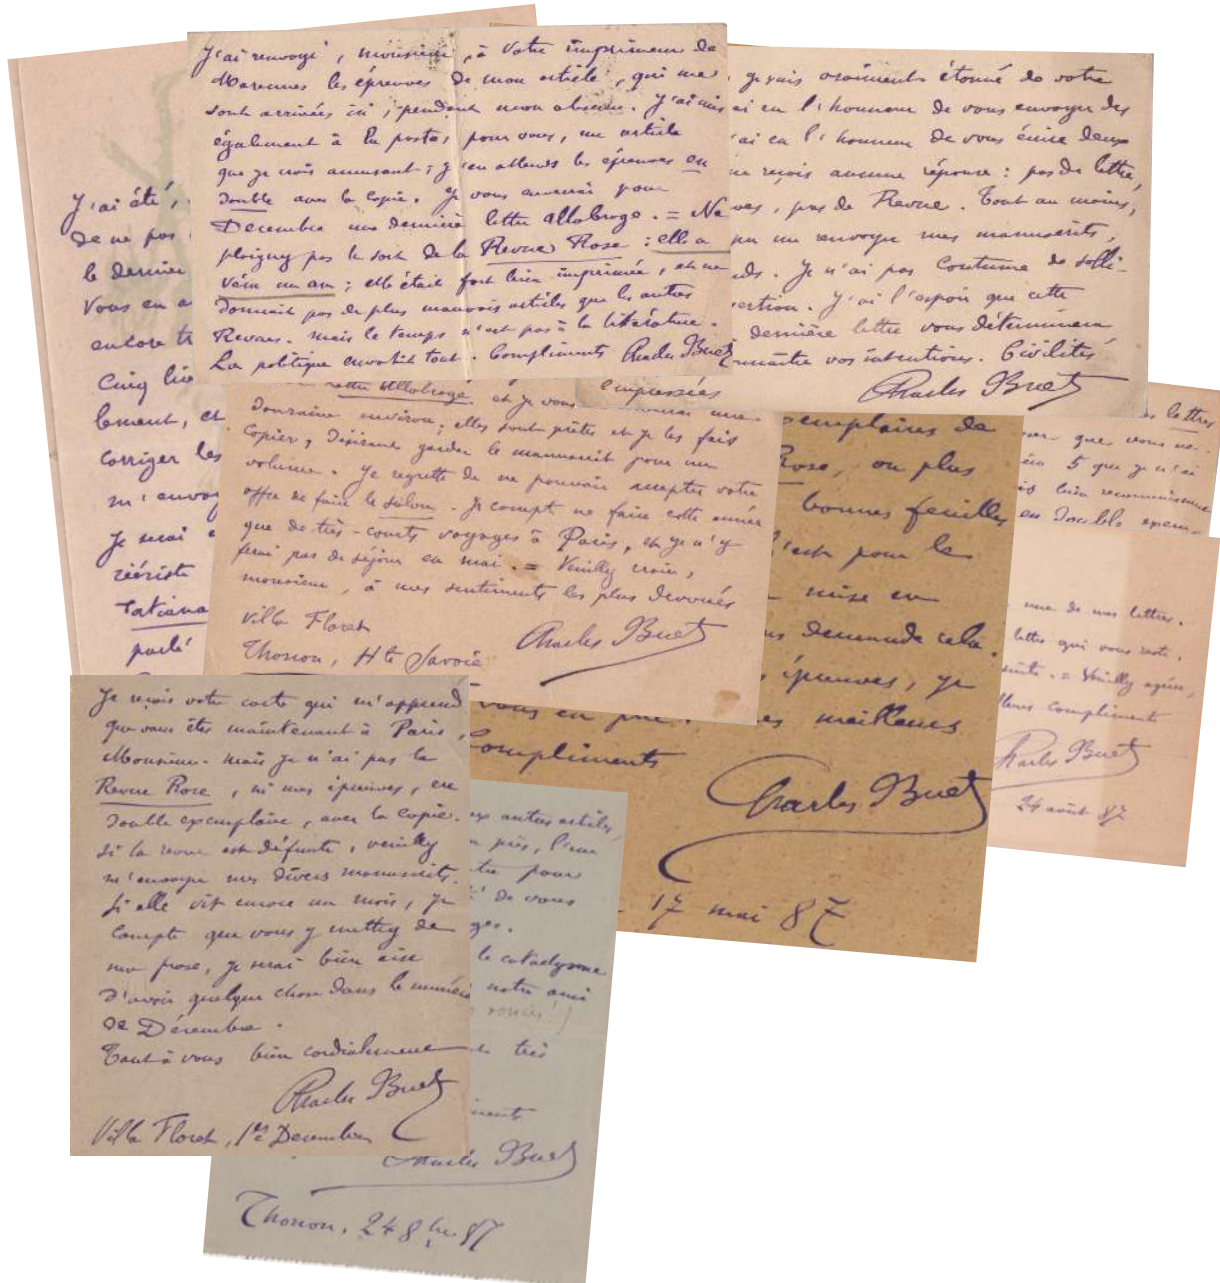 J'ai renvoyé, monsieur, à votre imprimeur de
Marennes les épreuves de mon article, qui me
sont arrivées ici, pendant mon absence. J'ai mis
également à la poste, pour vous, un article
que je crois amusant ; j'en attends les épreuves en
double avec la copie. Je vous enverrai pour
Décembre ma dernière lettre allobroge. = Ne
plaignez pas le sort de la Revue Rose : elle a
vécu un an ; elle était fort bien imprimée, et ne
donnait pas de plus mauvais articles que les autres
Revues. Mais le temps n'est pas à la littérature.
La politique envahit tout. Compliments Charles Buet
je suis vraiment étonné de votre
ai eu l'honneur de vous envoyer des
'ai eu l'honneur de vous écrire deux
ne reçois aucune réponse : pas de lettre,
ves, pas de Revue. Tout au moins,
me renvoyer mes manuscrits,
ds. Je n'ai pas coutume de solli-
ertion. J'ai l'espoir que cette
dernière lettre vous déterminera
onnaître vos intentions. Civilités
empressées Charles Buet
J'ai été,
de ne pas
le dernier
Vous en a
encore tr
Cinq liv
lement, et
corriger les
m'envoy
Je serai
récrire
Tatiana
parlé
Lettre Allobroge, et je vous
douzaine environ ; elles sont prêtes et je les fais
copier, désirant garder le manuscrit pour un
volume. Je regrette de ne pouvoir accepter votre
offre de faire le salon. Je compte ne faire cette année
que de très-courts voyages à Paris, et je n'y
ferai pas de séjour en mai. = Veuillez croire,
monsieur, à mes sentiments les plus dévoués
Villa Floret
Thonon, Hte Savoie
Charles Buet
emplaires de
Rose, ou plus
bonnes feuilles
c'est pour le
mise en
us demande cela.
épreuves, je
vous en prie. meilleurs
Compliments
Charles Buet
17 mai 87
lettres
que vous ne
5 que je n'ai
bien reconnaissant
en double exem-
une de mes lettres.
lettre qui vous reste.
suite. = Veuillez agréer,
lleurs compliments
Charles Buet
24 août 87
Je reçois votre carte qui m'apprend
que vous êtes maintenant à Paris,
Monsieur. Mais je n'ai pas la
Revue Rose, ni mes épreuves, en
double exemplaire, avec la copie.
Si la revue est défunte, veuillez
m'envoyer mes divers manuscrits.
Si elle vit encore un mois, je
compte que vous y mettrez de
ma prose, je serai bien aise
d'avoir quelque chose dans le numéro
de Décembre.
Tout à vous bien cordialement
Charles Buet
Villa Floret, 1er Décembre
ux autres articles,
près, l'une
pour
de vous
ges.
le cataclysme
notre ami
très
iments
Charles Buet
Thonon, 24 8bre 87